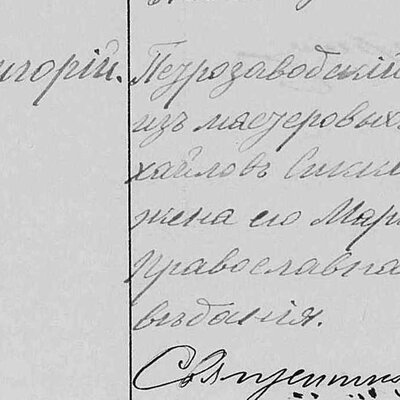 игорій. Петрозаводскій
изъ мастеровыхъ
хайловъ
жена его Мар
православна
вѣданія.
Священник